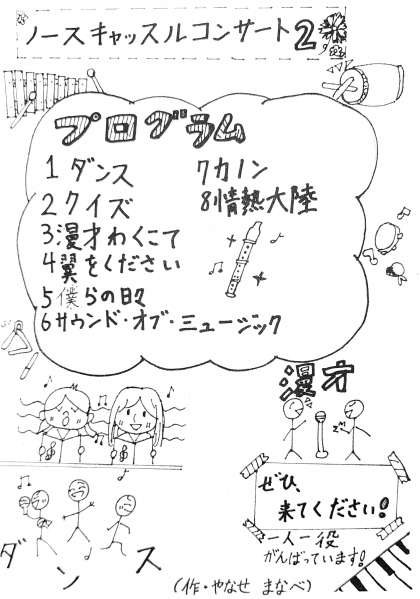 ノースキャッスルコンサート2
プログラム
1 ダンス
2 クイズ
3 漫才わくこて
4 翼をください
5 僕らの日々
6 サウンド・オブ・ミュージック
7 カノン
8 情熱大陸
漫才
ぜひ、
来てください!
一人一役
がんばっています!
ダンス
(作・やなせ まなべ)